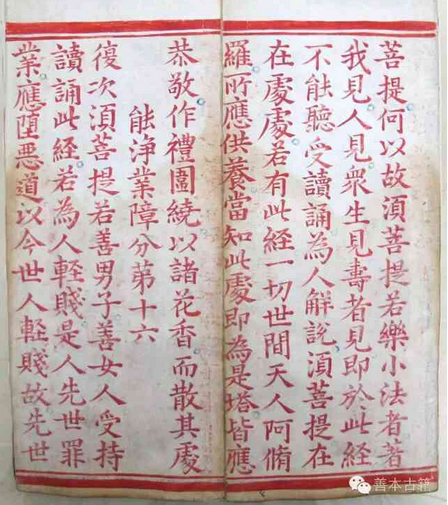 菩提何以故湏菩提若樂小法者著
我見人見衆生見壽者見即於此經
不能聽受讀誦為人解説湏菩提在
在處處若有此經一切世間天人阿脩
羅所應供養當知此處即為是塔皆應
恭敬作禮圍繞以諸花香而散其處
能淨業障分第十六
復次湏菩提若善男子善女人受持
讀誦此經若為人輕賤是人先世罪
業應墮惡道以今世人輕賤故先世
善本古籍